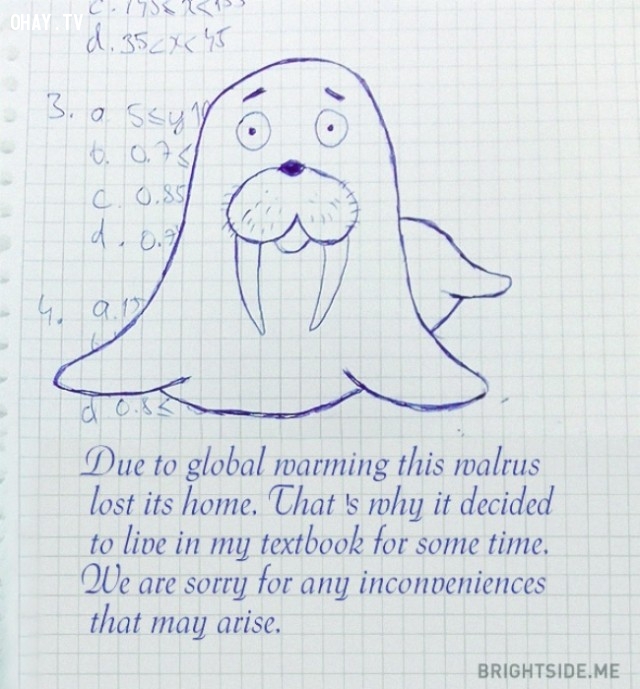 c. 145≤x≤155
OHAY.TV
d. 35<x<45
3. a 5≤y
b. 0.7≤
c. 0.85
d. 0.7
4. a.
d 0.8≤
Due to global warming this walrus
lost its home. That 's why it decided
to live in my textbook for some time.
We are sorry for any inconveniences
that may arise.
BRIGHTSIDE.ME